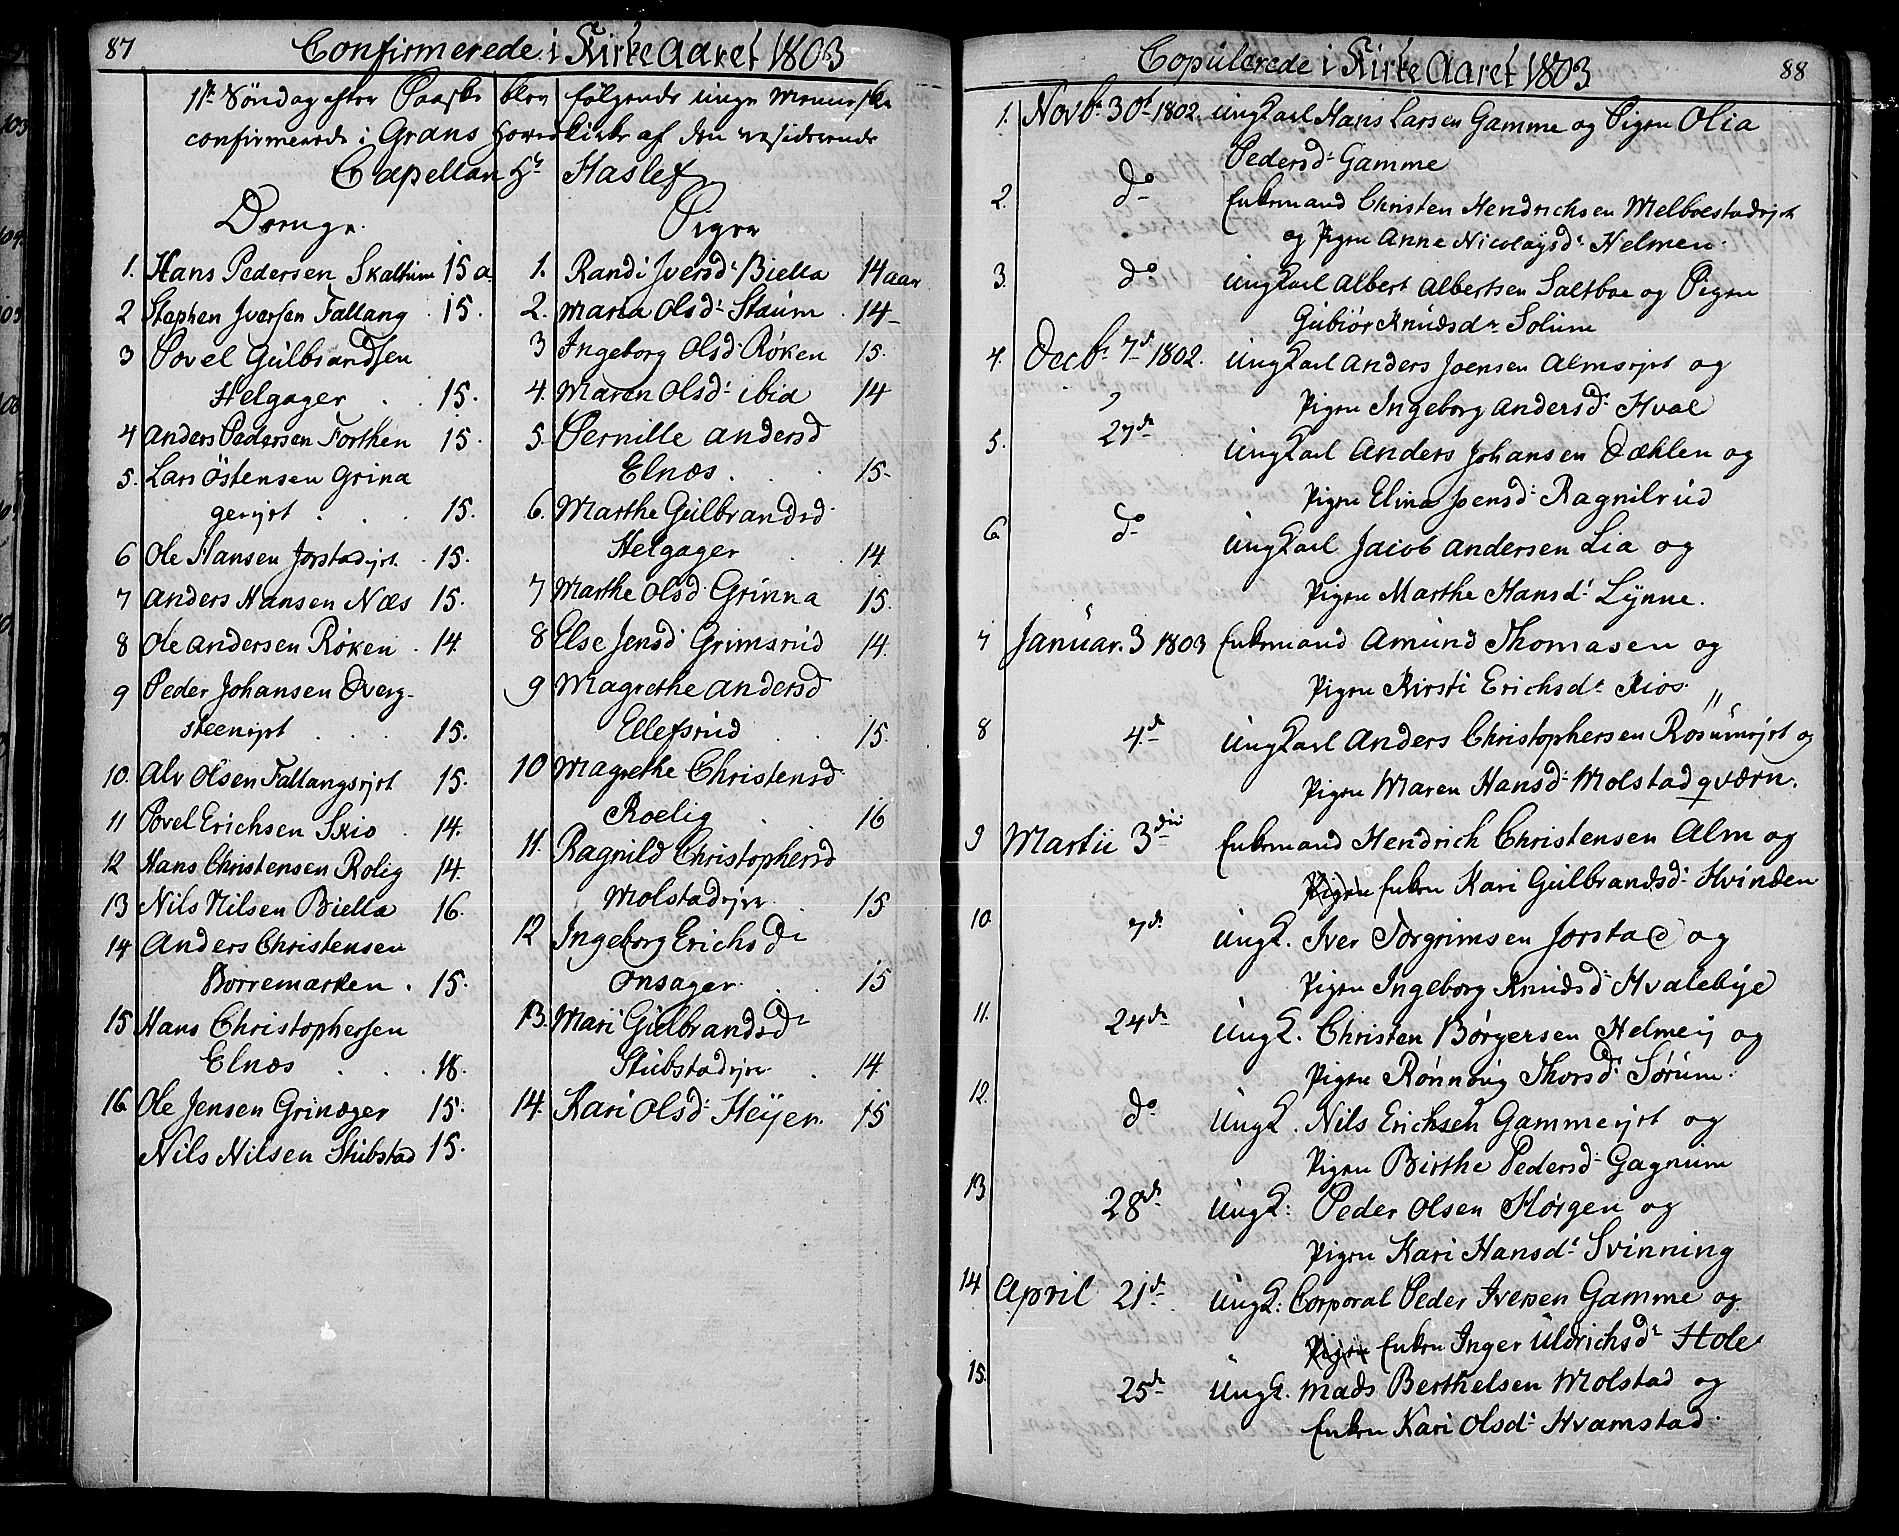 87
Confirmerede i Kirke Aaret 1803
1ste Söndag efter Paaske blev følgende unge Mennisker
confirmerede i Grans Hovedkirke af den residerende
Capellan Hr Haslef
Drenge.
1. Hans Pedersen Skattum 15 a
2 Stephen Iversen Fallang . 15.
3 Povel Gulbrandsen
Helgager . . 15.
4 Anders Pedersen Forthen 15.
5. Lars Östensen Grina
gerejet . . . 15.
6 Ole Hansen Jorstadejet. . 15.
7 Anders Hansen Næs 15.
8 Ole Andersen Røken . 14.
9 Peder Johansen Dverg-
steenejet . . . 15.
10. Alv Olsen Fallangsejet 15.
11 Povel Erichsen Skio . 14.
12 Hans Christensen Rolig 14.
13 Nils Nilsen Biella 16.
14 Anders Christensen
Borremarken . 15.
15 Hans Christophersen
Elnæs . . . 18.
16 Ole Jensen Grinager 15.
Nils Nilsen Stubstad 15.
Piger
1. Randi Iversd: Biella 14 aar
2. Maria Olsd: Staum . 14-
3 Ingeborg Olsd: Røken 15.
4. Maren Olsd: ibid 14
5. Pernille Andersd
Elnæs . . 15-
6. Marthe Gulbrandsd:
Helgager . 14.
7 Marthe Olsd: Grinna 15.
8 Else Jensd: Grimsrud 14.
9 Magrethe Andersd
Ellefsrud . . 15.
10 Magrethe Christensd:
Roelig . . 16
11. Ragnild Christophersd
Molstadejer . 15
12 Ingeborg Erichsd:
Onsager . . 15
13. Mari Gulbrandsd:
Stubstadejer . 14.
14. Kari Olsd: Heÿer. 15
Copulerede i Kirke Aaret 1803
88
1. Novbr: 30d 1802. Ungkarl Hans Larsen Gamme og Pigen Olia
Pedersd: Gamme
2. do Enkemand Christen Hendrichsen Melboestadejet
og Pigen Anne Nicolaysd: Helmen.
3. do Ungkarl Albert Albertsen Saltboe og Pigen
Gubiör Knudsd: Solum
4. Decbr: 7d 1802. Ungkarl Anders Joensen Almsejet og
Pigen Ingeborg Andersd: Hval
5. 27de Ungkarl Anders Johansen Dæhlen og
Pigen Elina Joensd: Ragnilrud
6 do Ungkarl Jacob Andersen Lia og
Pigen Marthe Hansd: Lÿnne.
7 Januar. 3 1803 Enkemand Amund Thomasen og
Pigen Kirsti Erichsd: Kios.
8 4de Ungkarl Anders Christophersen Rosumejet og
Pigen Maren Hansd: Molstadqværn.
9 Martii 3die Enkemand Hendrich Christensen Alm og
Pigen Enken Kari Gulbrandsd: Hvinden
10. 7de Ungk. Iver Torgrimsen Jorstad og
Pigen Ingeborg Knudsd: Hvalebÿe
11. 24de Ungk. Christen Börgersen Helmeij og
Pigen Rönnöug Thorsd: Sørum.
12. do Ungk. Nils Erichsen Gammeejet og
Pigen Birthe Pedersd: Gagnum
13 28de Ungk: Peder Olsen Hörgen og
Pigen Kari Hansd: Svinning
14 April 21de Ungk: Corporal Peder Iversen Gamme og
Pigen Enken Inger Uldrichsd: Hole
15. 25de Ungk. Mads Berthelsen Molstad og
Enken Kari Olsd: Hvamstad.